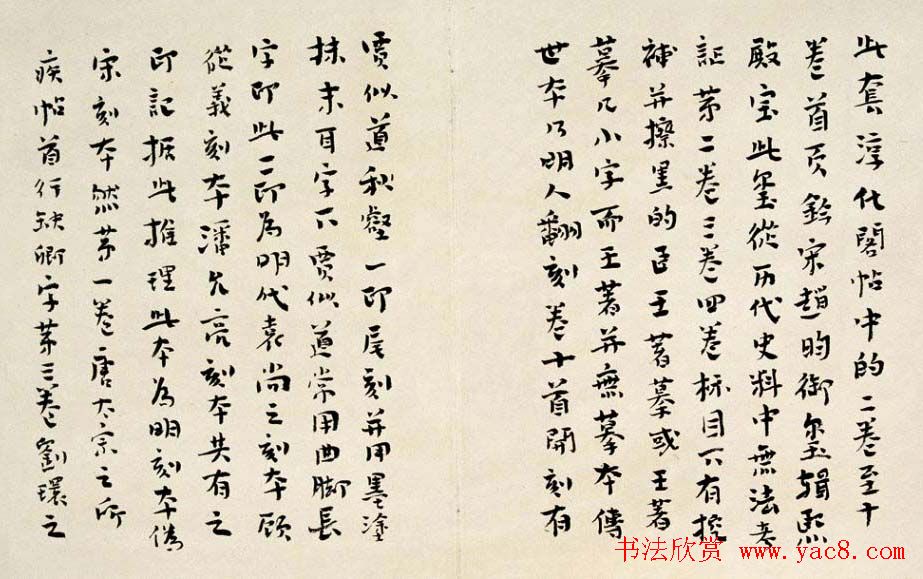 此套淳化阁帖中的二卷至十
卷首页钤宋赵昀御玺缉熙
殿宝此玺從历代史料中無法考
証苐二卷三卷四卷标目下有挖
補并擦墨的臣王著摹或王著
摹几小字而王著并無摹本傳
世本乃明人翻刻卷十首開刻有
賈似道秋壑一印尾刻并用墨塗
抹末耳字下賈似道常用曲脚長
字印此二印為明代袁尚之刻本顾
從義刻本潘允亮刻本共有之
印記据此推理此本為明刻本偽
宋刻本然苐一卷唐太宗之所
疾帖首行缺卿字苐三卷劉環之
书法欣赏 www.yac8.com